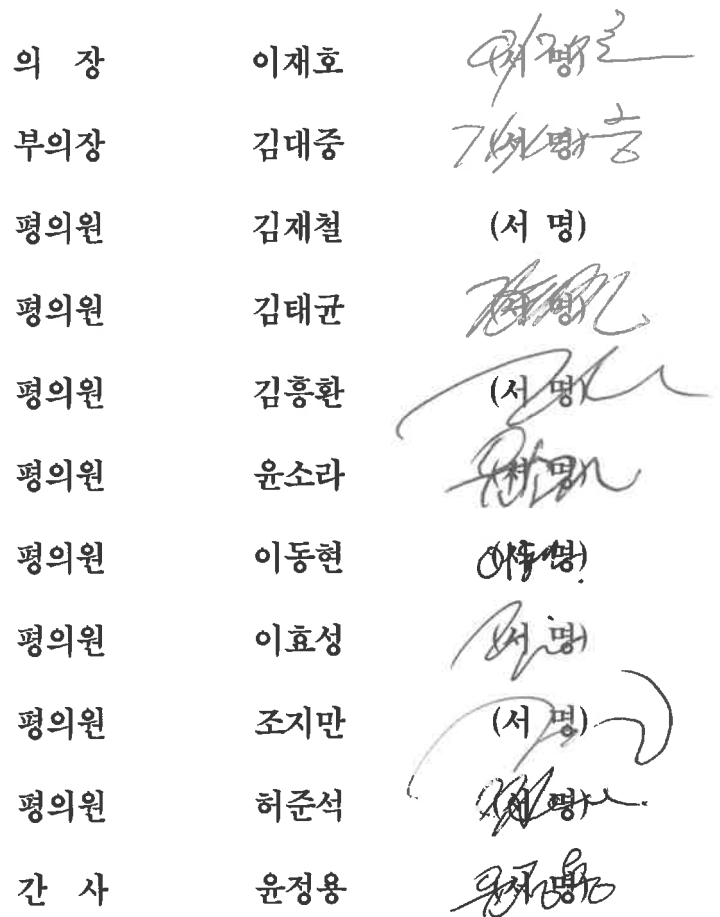 의 장 이재호 (서 명)
부의장 김대중 (서 명)
평의원 김재철 (서 명)
평의원 김태균 (서 명)
평의원 김흥환 (서 명)
평의원 윤소라 (서 명)
평의원 이동현 (서 명)
평의원 이효성 (서 명)
평의원 조지만 (서 명)
평의원 허준석 (서 명)
간 사 윤정용 (서 명)